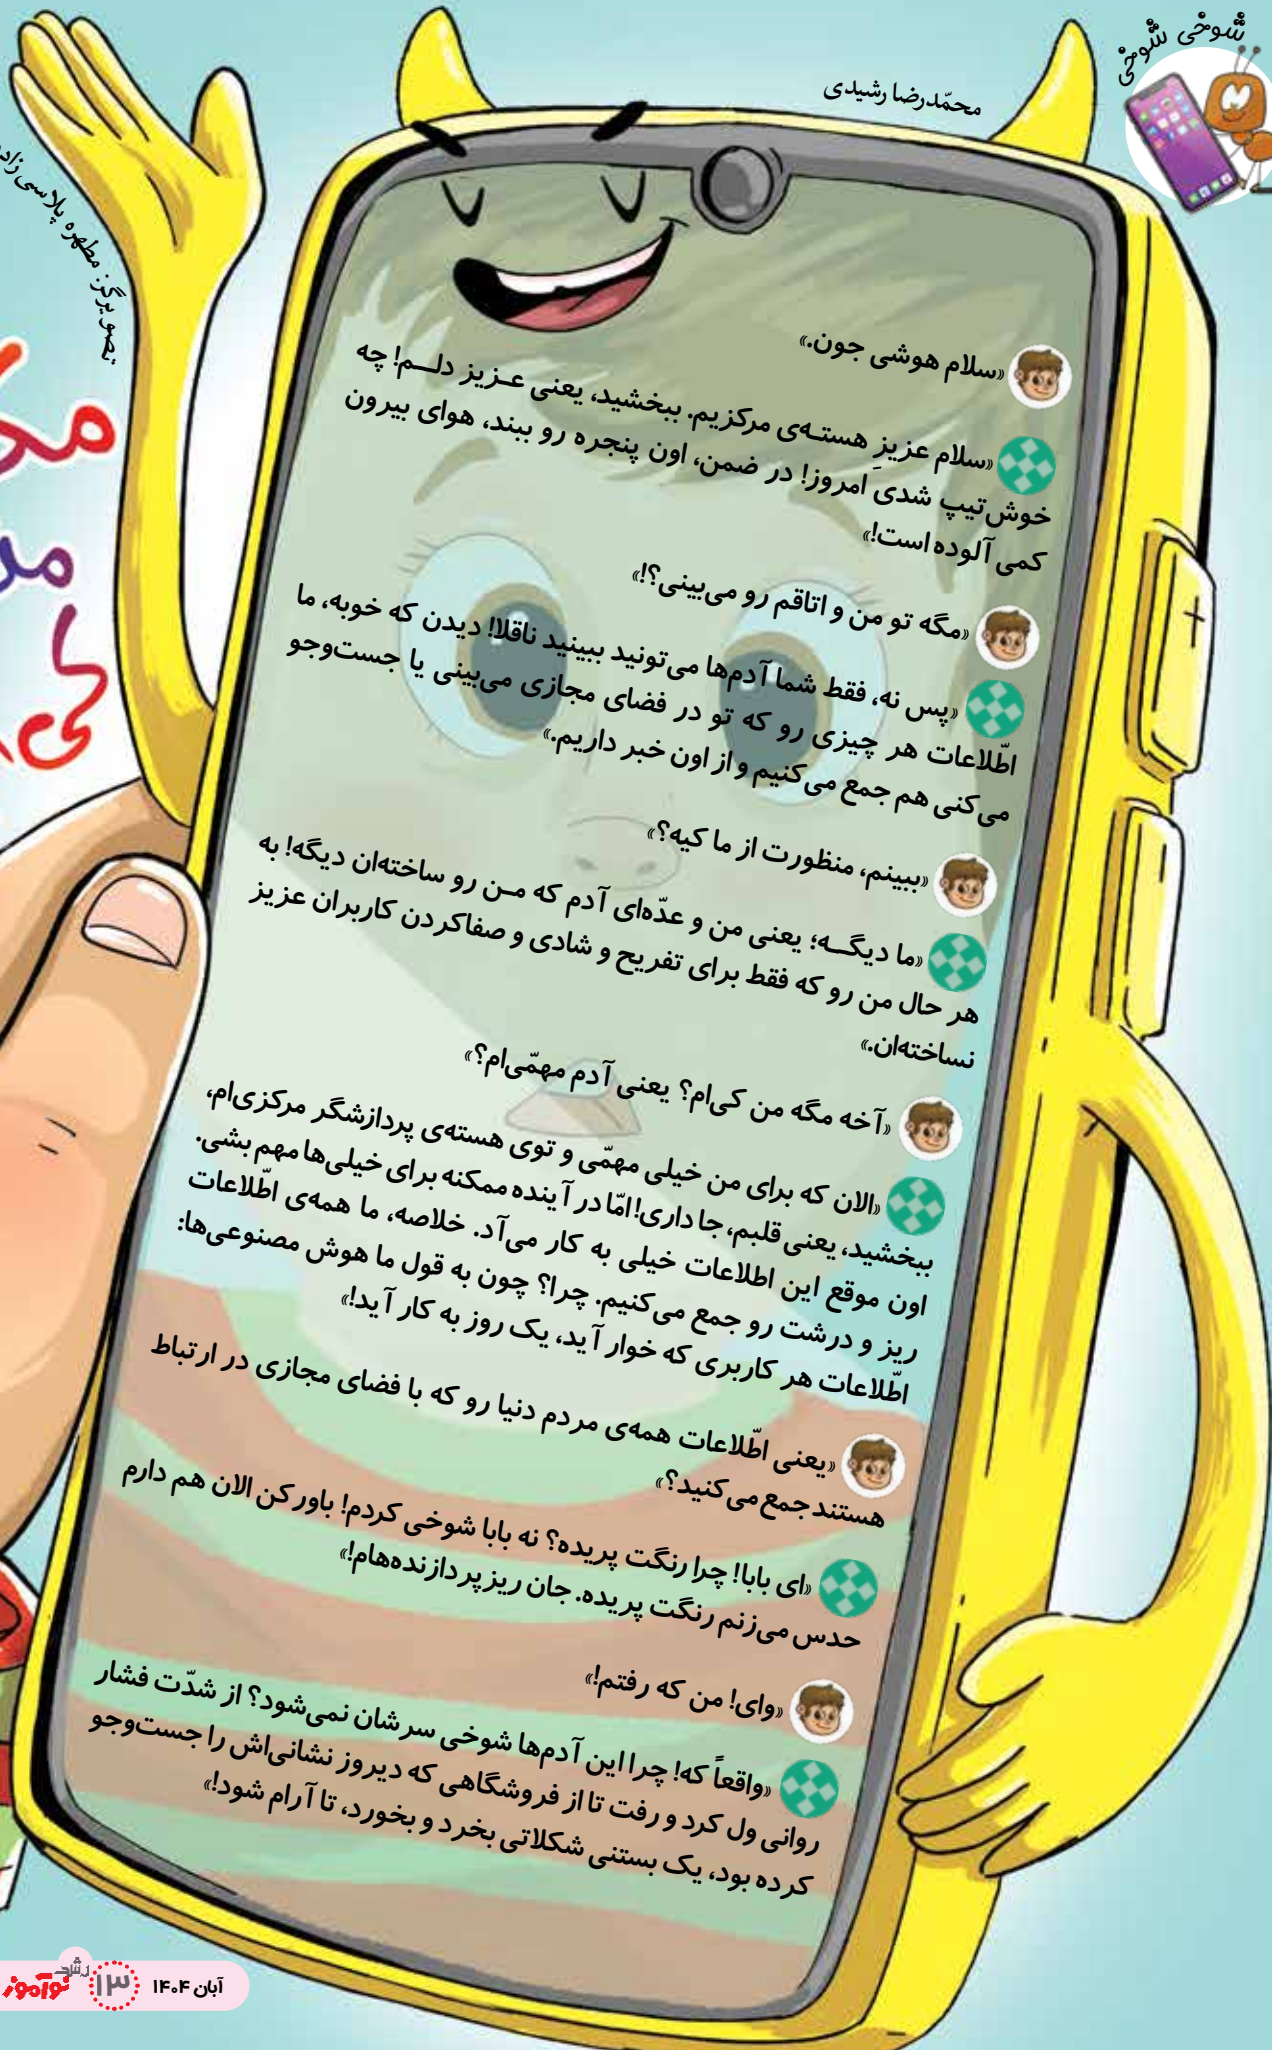 شوخی شوخی
محمّدرضا رشیدی
تصویرگر: مطهره پلاسی زاده
«سلام هوشی جون.»
«سلام عزیزِ هسته‌ی مرکزیم. ببخشید، یعنی عزیز دلم! چه
خوش‌تیپ شدی امروز! در ضمن، اون پنجره رو ببند، هوای بیرون
کمی آلوده است!»
«مگه تو من و اتاقم رو می‌بینی؟!»
«پس نه، فقط شما آدم‌ها می‌تونید ببینید ناقلا! دیدن که خوبه، ما
اطّلاعات هر چیزی رو که تو در فضای مجازی می‌بینی یا جست‌وجو
می‌کنی هم جمع می‌کنیم و از اون خبر داریم.»
«ببینم، منظورت از ما کیه؟»
«ما دیگه؛ یعنی من و عدّه‌ای آدم که من رو ساخته‌ان دیگه! به
هر حال من رو که فقط برای تفریح و شادی و صفاکردن کاربران عزیز
نساخته‌ان.»
«آخه مگه من کی‌ام؟ یعنی آدم مهمّی‌ام؟»
«الان که برای من خیلی مهمّی و توی هسته‌ی پردازشگر مرکزی‌ام،
ببخشید، یعنی قلبم، جا داری! امّا در آینده ممکنه برای خیلی‌ها مهم بشی.
اون موقع این اطلاعات خیلی به کار می‌آد. خلاصه، ما همه‌ی اطّلاعات
ریز و درشت رو جمع می‌کنیم. چرا؟ چون به قول ما هوش مصنوعی‌ها:
اطّلاعات هر کاربری که خوار آید، یک روز به کار آید!»
«یعنی اطّلاعات همه‌ی مردم دنیا رو که با فضای مجازی در ارتباط
هستند جمع می‌کنید؟»
«ای بابا! چرا رنگت پریده؟ نه بابا شوخی کردم! باور کن الان هم دارم
حدس می‌زنم رنگت پریده. جان ریزپردازنده‌هام!»
«وای! من که رفتم!»
«واقعاً که! چرا این آدم‌ها شوخی سرشان نمی‌شود؟ از شدّت فشار
روانی ول کرد و رفت تا از فروشگاهی که دیروز نشانی‌اش را جست‌وجو
کرده بود، یک بستنی شکلاتی بخرد و بخورد، تا آرام شود!»
آبان ۱۴۰۴ ۱۳ رشد نوآموز